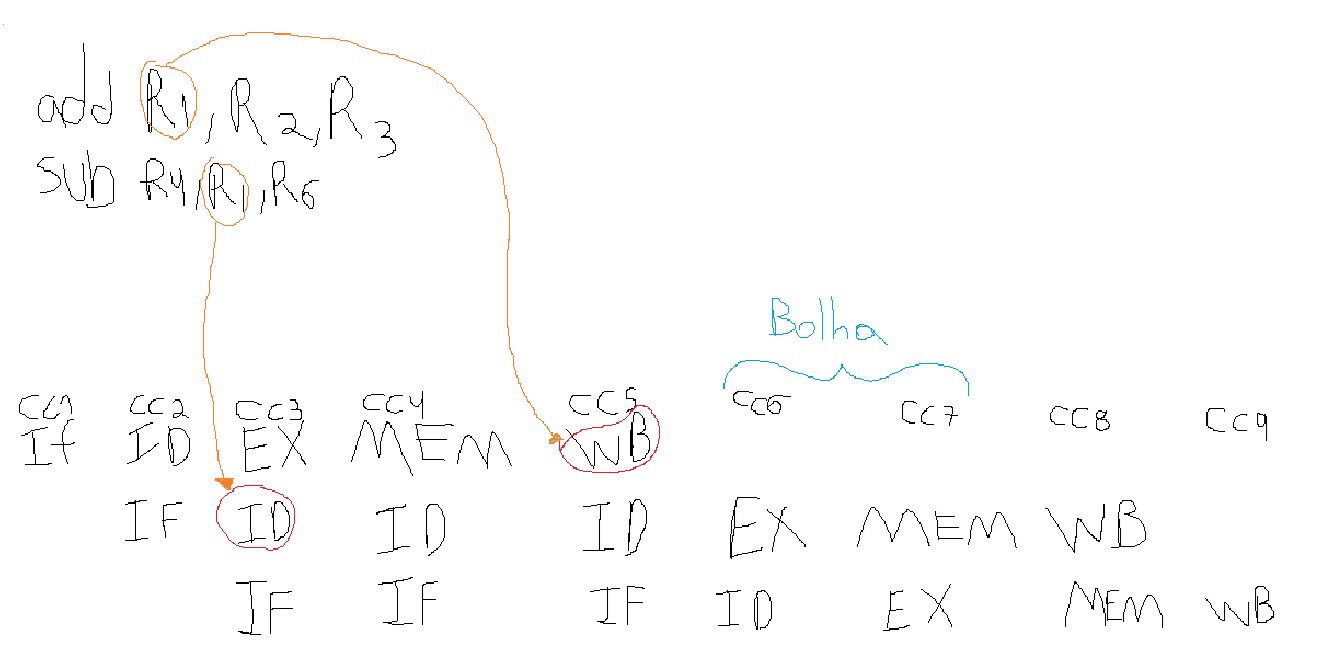 add R1, R2, R3
SUB R4, R1, R6
Bolha
CC1 CC2 CC3 CC4 CC5 CC6 CC7 CC8 CC9
If ID EX MEM WB
IF ID ID ID EX MEM WB
IF IF IF ID EX MEM WB